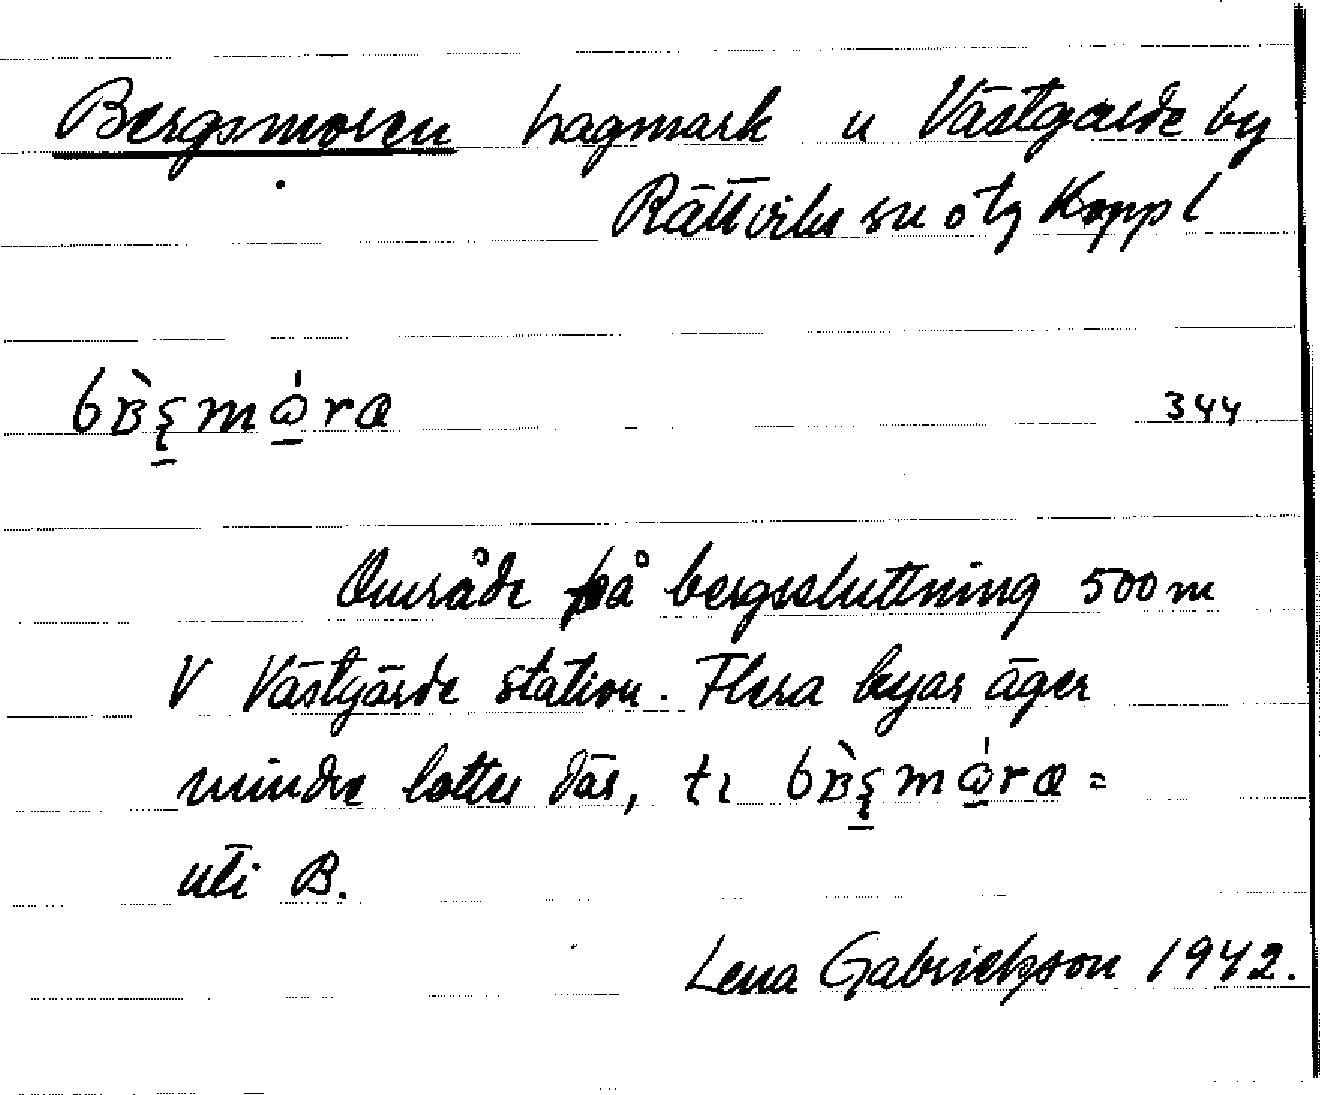 Bergsmoren hagmark u Västgärde by
Rättviks sn o tg Kopp l
bʙ̀ʂmɷ́ra 344
Område på bergssluttning 500 m
V Västgärde station. Flera byar äger
mindre lotter där, tɩ bʙ̀ʂmɷ́ra =
uti B.
Lena Gabrielsson 1942.